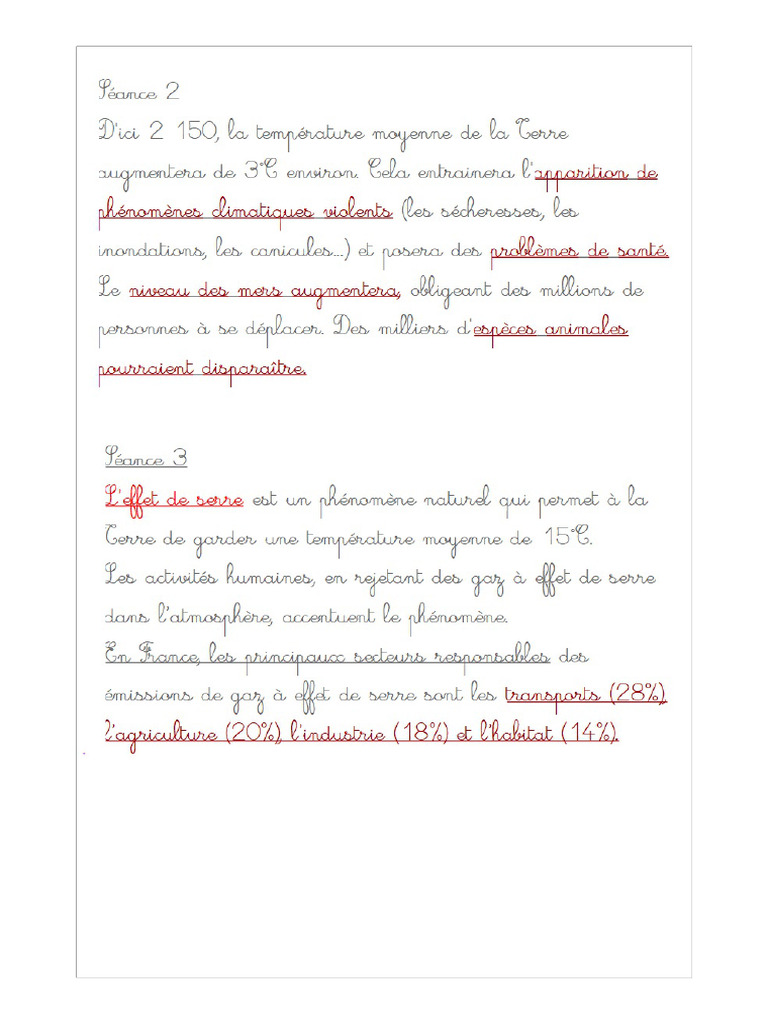 Séance 2
D'ici 2 150, la température moyenne de la Terre
augmentera de 3°C environ. Cela entrainera l'apparition de
phénomènes climatiques violents (les sécheresses, les
inondations, les canicules...) et posera des problèmes de santé.
Le niveau des mers augmentera, obligeant des millions de
personnes à se déplacer. Des milliers d'espèces animales
pourraient disparaître.
Séance 3
L'effet de serre est un phénomène naturel qui permet à la
Terre de garder une température moyenne de 15°C.
Les activités humaines, en rejetant des gaz à effet de serre
dans l'atmosphère, accentuent le phénomène.
En France, les principaux secteurs responsables des
émissions de gaz à effet de serre sont les transports (28%),
l'agriculture (20%), l'industrie (18%) et l'habitat (14%).